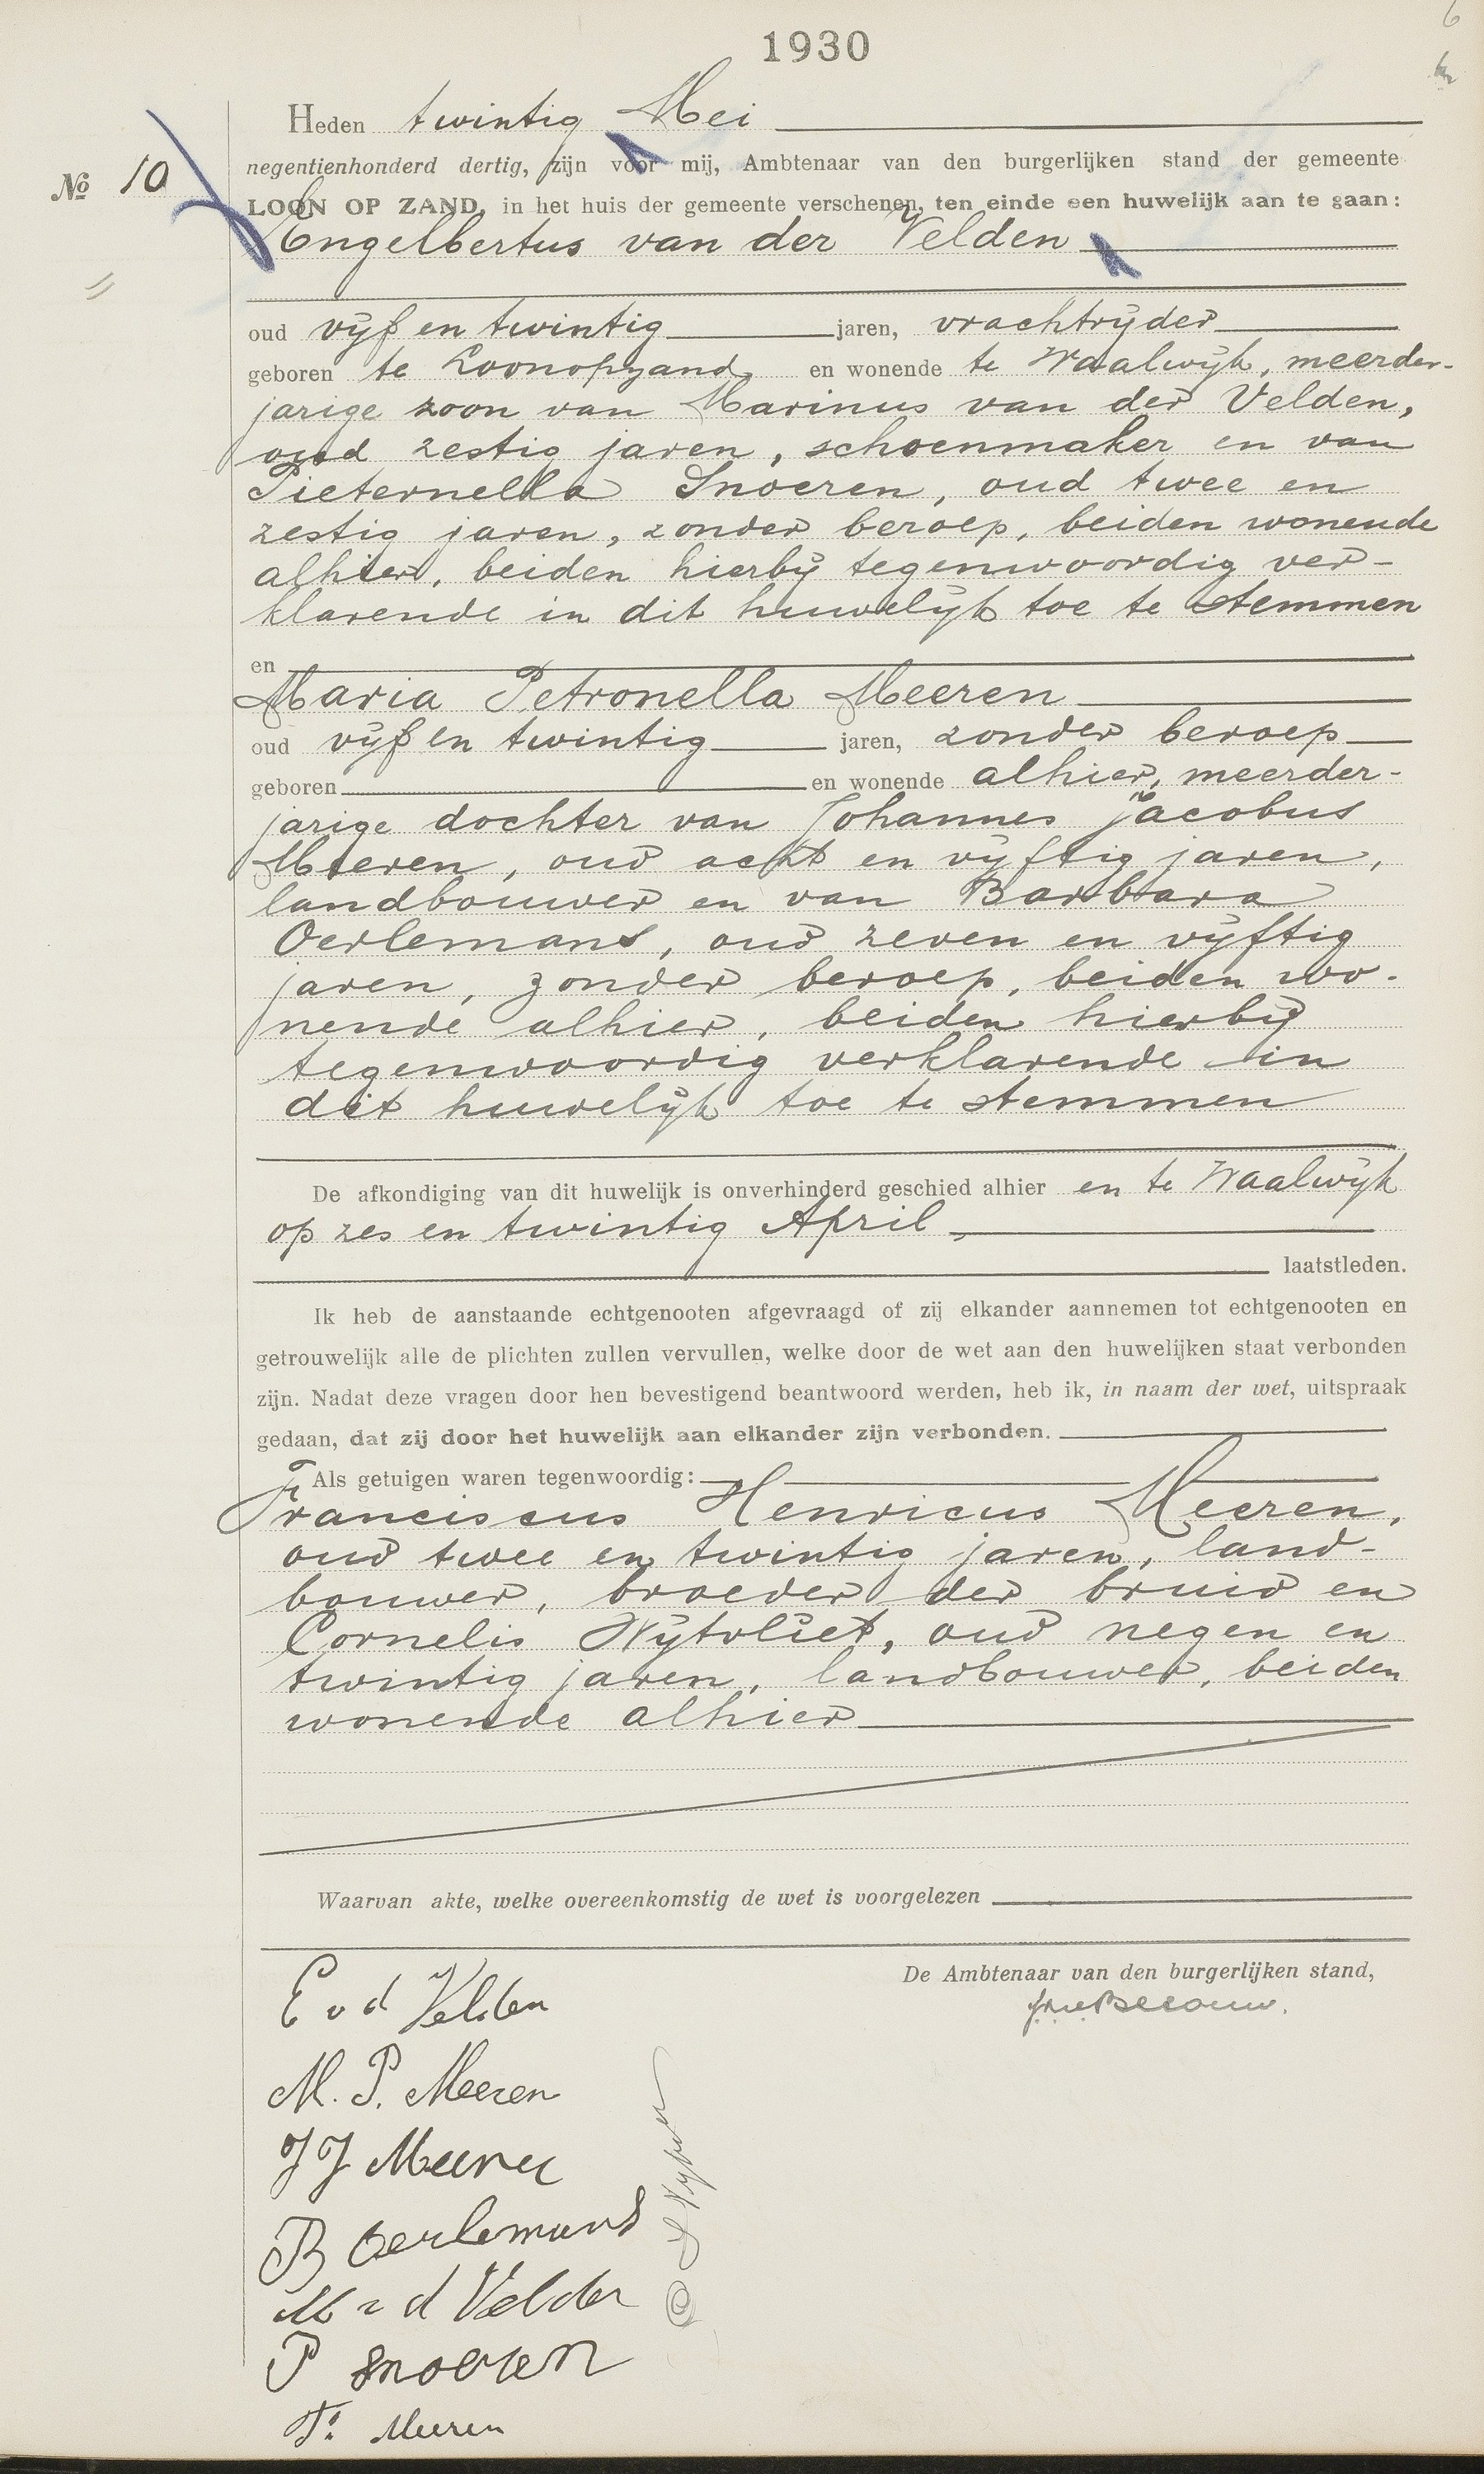 6
1930
Heden twintig Mei
negentienhonderd dertig, zijn voor mij, Ambtenaar van den burgerlijken stand der gemeente
№ 10
LOON OP ZAND, in het huis der gemeente verschenen, ten einde een huwelijk aan te gaan:
Engelbertus van der Velden
oud vijf en twintig jaren, vrachtrijder
geboren te Loonopzand en wonende te Waalwijk, meerder-
jarige zoon van Marinus van der Velden,
oud zestig jaren, schoenmaker en van
Pieternella Snoeren, oud twee en
zestig jaren, zonder beroep, beiden wonende
alhier, beiden hierbij tegenwoordig ver-
klarende in dit huwelijk toe te stemmen
en
Maria Petronella Meeren
oud vijf en twintig jaren, zonder beroep
geboren en wonende alhier, meerder-
jarige dochter van Johannes Jacobus
Meeren, oud acht en vijftig jaren,
landbouwer en van Barbara
Oerlemans, oud zeven en vijftig
jaren, zonder beroep, beiden wo-
nende alhier, beiden hierbij
tegenwoordig verklarende in
dit huwelijk toe te stemmen
De afkondiging van dit huwelijk is onverhinderd geschied alhier en te Waalwijk
op zes en twintig April,
laatstleden.
Ik heb de aanstaande echtgenooten afgevraagd of zij elkander aannemen tot echtgenooten en
getrouwelijk alle de plichten zullen vervullen, welke door de wet aan den huwelijken staat verbonden
zijn. Nadat deze vragen door hen bevestigend beantwoord werden, heb ik, in naam der wet, uitspraak
gedaan, dat zij door het huwelijk aan elkander zijn verbonden.
Als getuigen waren tegenwoordig:
Franciscus Henricus Meeren,
oud twee en twintig jaren, land-
bouwer, broeder der bruid en
Cornelis Wijtvliet, oud negen en
twintig jaren, landbouwer, beiden
wonende alhier
Waarvan akte, welke overeenkomstig de wet is voorgelezen
De Ambtenaar van den burgerlijken stand,
E v d Velden
M. P. Meeren
J J Meeren
B Oerlemans
M v d Velden
P Snoeren
Fr Meeren